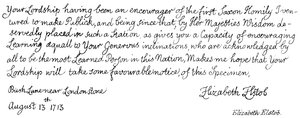 Your Lordship having been an encourager of the first Saxon Homily I ven-
tured to make Publick, and being since that by Her Majesties Wisdom de-
servedly placed in such a Station as gives you a Capacity of encouraging
Learning equall to Your Generous inclinations, who are acknowledged by
all to be the most Learned Person in this Nation, Makes me hope that Your
Lordship will take some favourable notice of this Specimen,
Bush Lane near London Stone
th
August 13 1713
Elizabeth Elstob
Elizabeth Elstob.